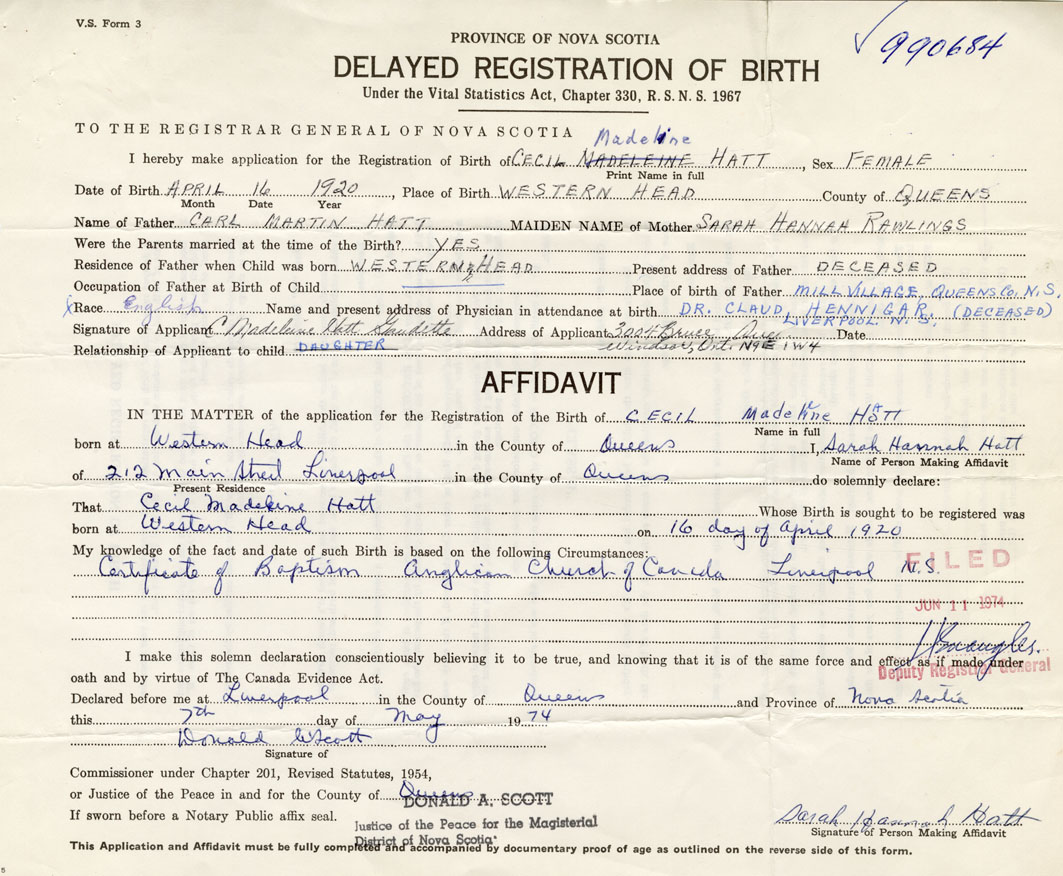 V.S. Form 3
✓990684
PROVINCE OF NOVA SCOTIA
DELAYED REGISTRATION OF BIRTH
Under the Vital Statistics Act, Chapter 330, R. S. N. S. 1967
TO THE REGISTRAR GENERAL OF NOVA SCOTIA
Madeline
I hereby make application for the Registration of Birth of CECIL MADELEINE HATT, Sex FEMALE
Print Name in full
Date of Birth APRIL 16 1920, Place of Birth WESTERN HEAD County of QUEENS
Month Date Year
Name of Father CARL MARTIN HATT MAIDEN NAME of Mother SARAH HANNAH RAWLINGS
Were the Parents married at the time of the Birth? YES
Residence of Father when Child was born WESTERN HEAD Present address of Father DECEASED
Occupation of Father at Birth of Child Place of birth of Father MILL VILLAGE, QUEENS CO, N.S.
Race English Name and present address of Physician in attendance at birth DR. CLAUD, HENNIGAR, (DECEASED)
LIVERPOOL. N. S,
Signature of Applicant C Madeline Hatt Gaudette Address of Applicant 3004 Bruce Ave Date
Windsor, Ont. N9E 1W4
Relationship of Applicant to child DAUGHTER
AFFIDAVIT
IN THE MATTER of the application for the Registration of the Birth of CECIL Madeline HATT
Name in full
born at Western Head in the County of Queens I, Sarah Hannah Hatt
Name of Person Making Affidavit
of 212 Main Street Liverpool in the County of Queens do solemnly declare:
Present Residence
That Cecil Madeline Hatt Whose Birth is sought to be registered was
born at Western Head on 16 day of April 1920
My knowledge of the fact and date of such Birth is based on the following Circumstances:
Certificate of Baptism Anglican Church of Canada Liverpool N.S.
FILED
JUN 11 1974
I make this solemn declaration conscientiously believing it to be true, and knowing that it is of the same force and effect as if made under
Deputy Registrar General
oath and by virtue of The Canada Evidence Act.
Declared before me at Liverpool in the County of Queens and Province of Nova Scotia
this 7th day of May 1974
Donald A Scott
Signature of
Commissioner under Chapter 201, Revised Statutes, 1954,
or Justice of the Peace in and for the County of Queens
DONALD A. SCOTT
If sworn before a Notary Public affix seal.
Justice of the Peace for the Magisterial
District of Nova Scotia
Sarah Hannah Hatt
Signature of Person Making Affidavit
This Application and Affidavit must be fully completed and accompanied by documentary proof of age as outlined on the reverse side of this form.
5